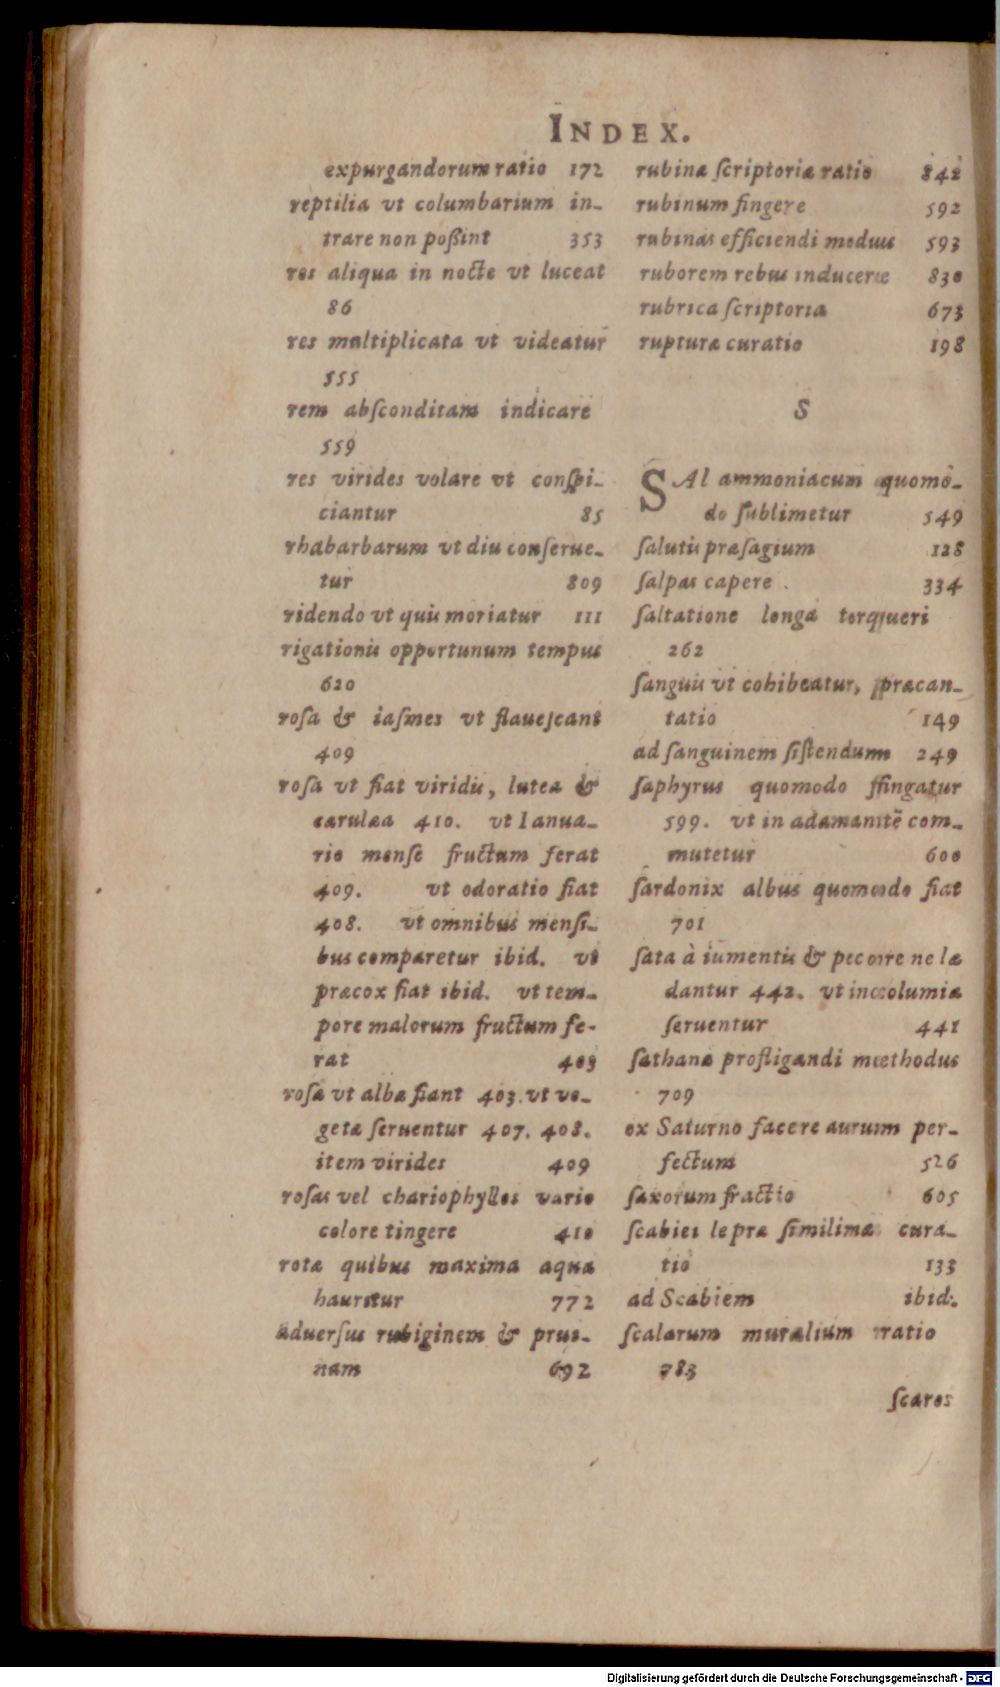 INDEX.
expurgandorum ratio 172
reptilia vt columbarium in-
trare non poßint 353
res aliqua in nocte vt luceat
86
res multiplicata vt videatur
555
rem abſconditam indicare
559
res virides volare vt conſpi-
ciantur 85
rhabarbarum vt diu conſerue-
tur 809
ridendo vt quis moriatur 111
rigationis opportunum tempus
620
roſa & iaſmes vt flaueſcant
409
roſa vt fiat viridis, lutea &
cærulæa 410. vt Ianua-
rio menſe fructum ferat
409. vt odoratio fiat
408. vt omnibus menſi-
bus comparetur ibid. vt
præcox fiat ibid. vt tem-
pore malorum fructum fe-
rat 403
roſæ vt albæ fiant 403. vt ve-
getæ ſeruentur 407. 408.
item virides 409
roſas vel chariophyllos vario
colore tingere 410
rotæ quibus maxima aqua
hauritur 772
aduerſus rubiginem & prui-
nam 692
rubinæ ſcriptoriæ ratio 842
rubinum fingere 592
rubinas efficiendi modus 593
ruborem rebus inducere 830
rubrica ſcriptoria 673
rupturæ curatio 198
S
SAl ammoniacum quomo-
do ſublimetur 549
ſalutis præſagium 128
ſalpas capere 334
ſaltatione longa torqueri
262
ſanguis vt cohibeatur, præcan-
tatio 149
ad ſanguinem ſiſtendum 249
ſaphyrus quomodo ffingatur
599. vt in adamantẽ com-
mutetur 600
ſardonix albus quomodo fiat
701
ſata à iumentis & pecore ne læ
dantur 442. vt incolumia
ſeruentur 441
ſathanæ profligandi methodus
709
ex Saturno facere aurum per-
fectum 526
ſaxorum fractio 605
ſcabiei lepræ ſimilima cura-
tio 133
ad Scabiem ibid.
ſcalarum muralium ratio
783
ſcaros
Digitalisierung gefördert durch die Deutsche Forschungsgemeinschaft - DFG